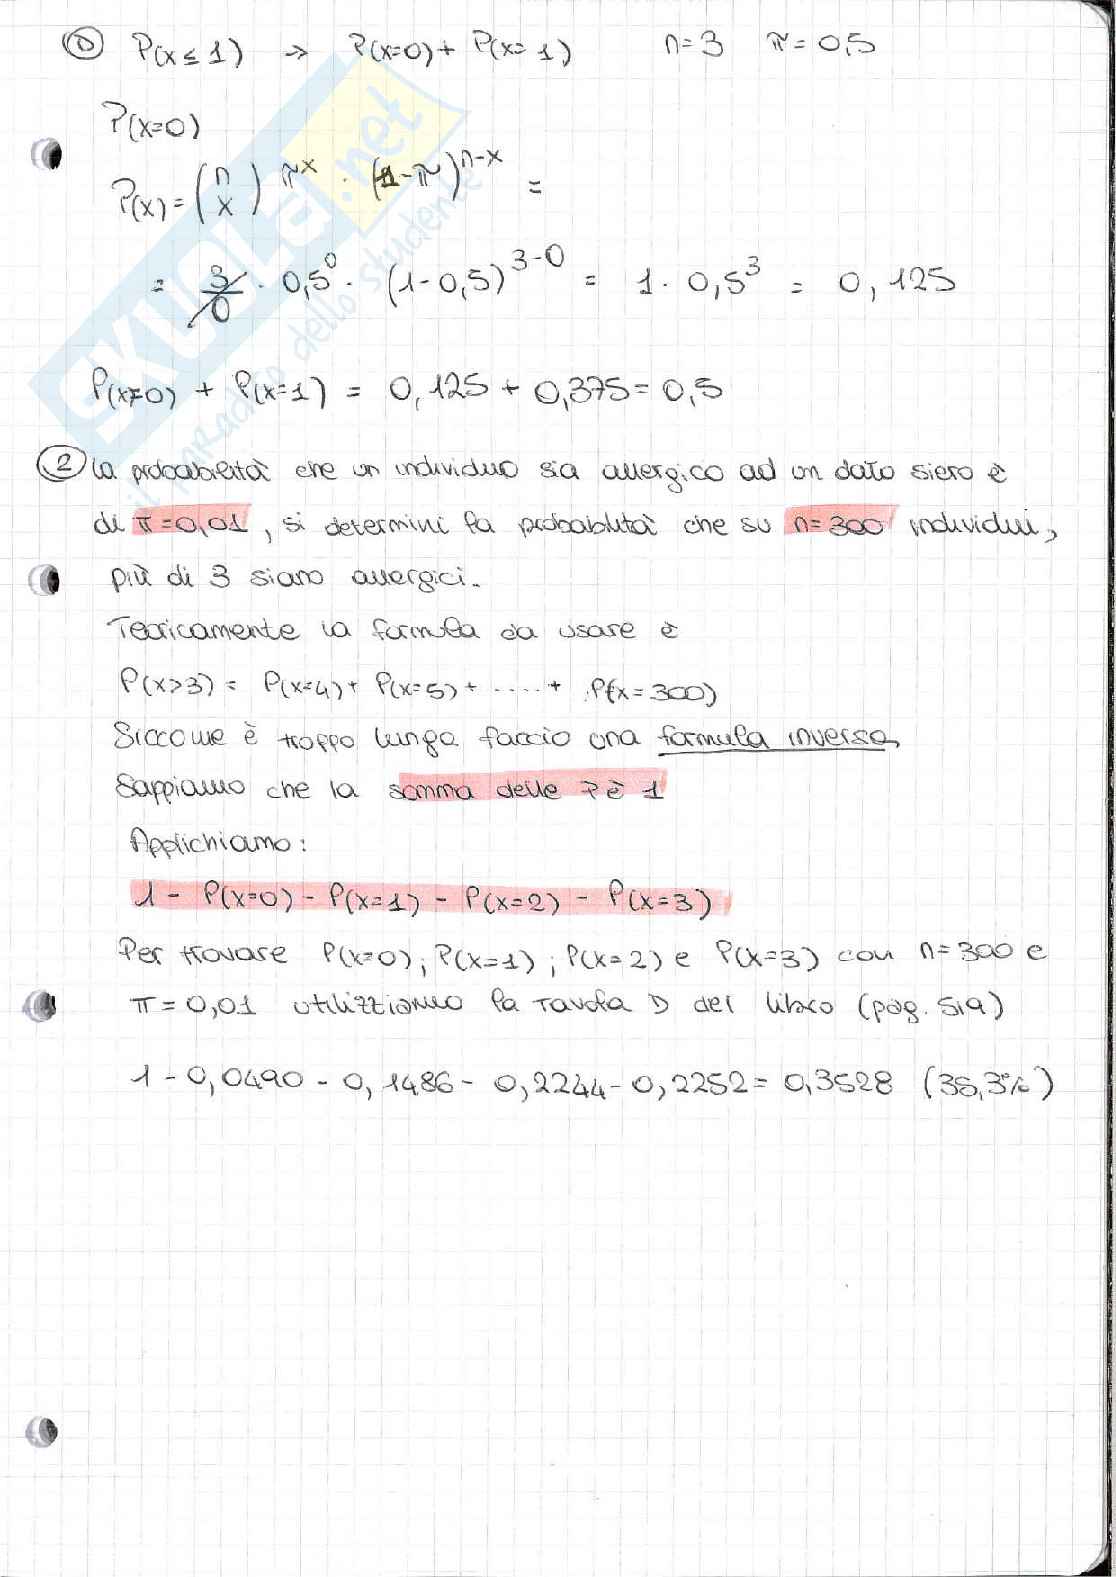 D P(x≤1) → P(x=0) + P(x=1) n=3 π=0,5
P(x=0)
P(x) = (n x) π^x · (1-π)^n-x =
= 3/0 · 0,5^0 · (1-0,5)^3-0 = 1 · 0,5^3 = 0,125
P(x=0) + P(x=1) = 0,125 + 0,375 = 0,5
2 la probabilità che un individuo sia allergico ad un dato siero è
di π=0,01, si determini la probabilità che su n=300 individui,
più di 3 siano allergici.
Teoricamente la formula da usare è
P(x>3) = P(x=4) + P(x=5) + ..... + P(x=300)
Siccome è troppo lunga faccio una formula inversa,
Sappiamo che la somma delle P è 1
Applichiamo:
1 - P(x=0) - P(x=1) - P(x=2) - P(x=3)
Per trovare P(x=0); P(x=1); P(x=2) e P(x=3) con n=300 e
π=0,01 utilizziamo la Tavola D del libro (pag. 519)
1 - 0,0490 - 0,1486 - 0,2244 - 0,2252 = 0,3528 (35,3%)
SKUOLA.net
il paradiso dello studente